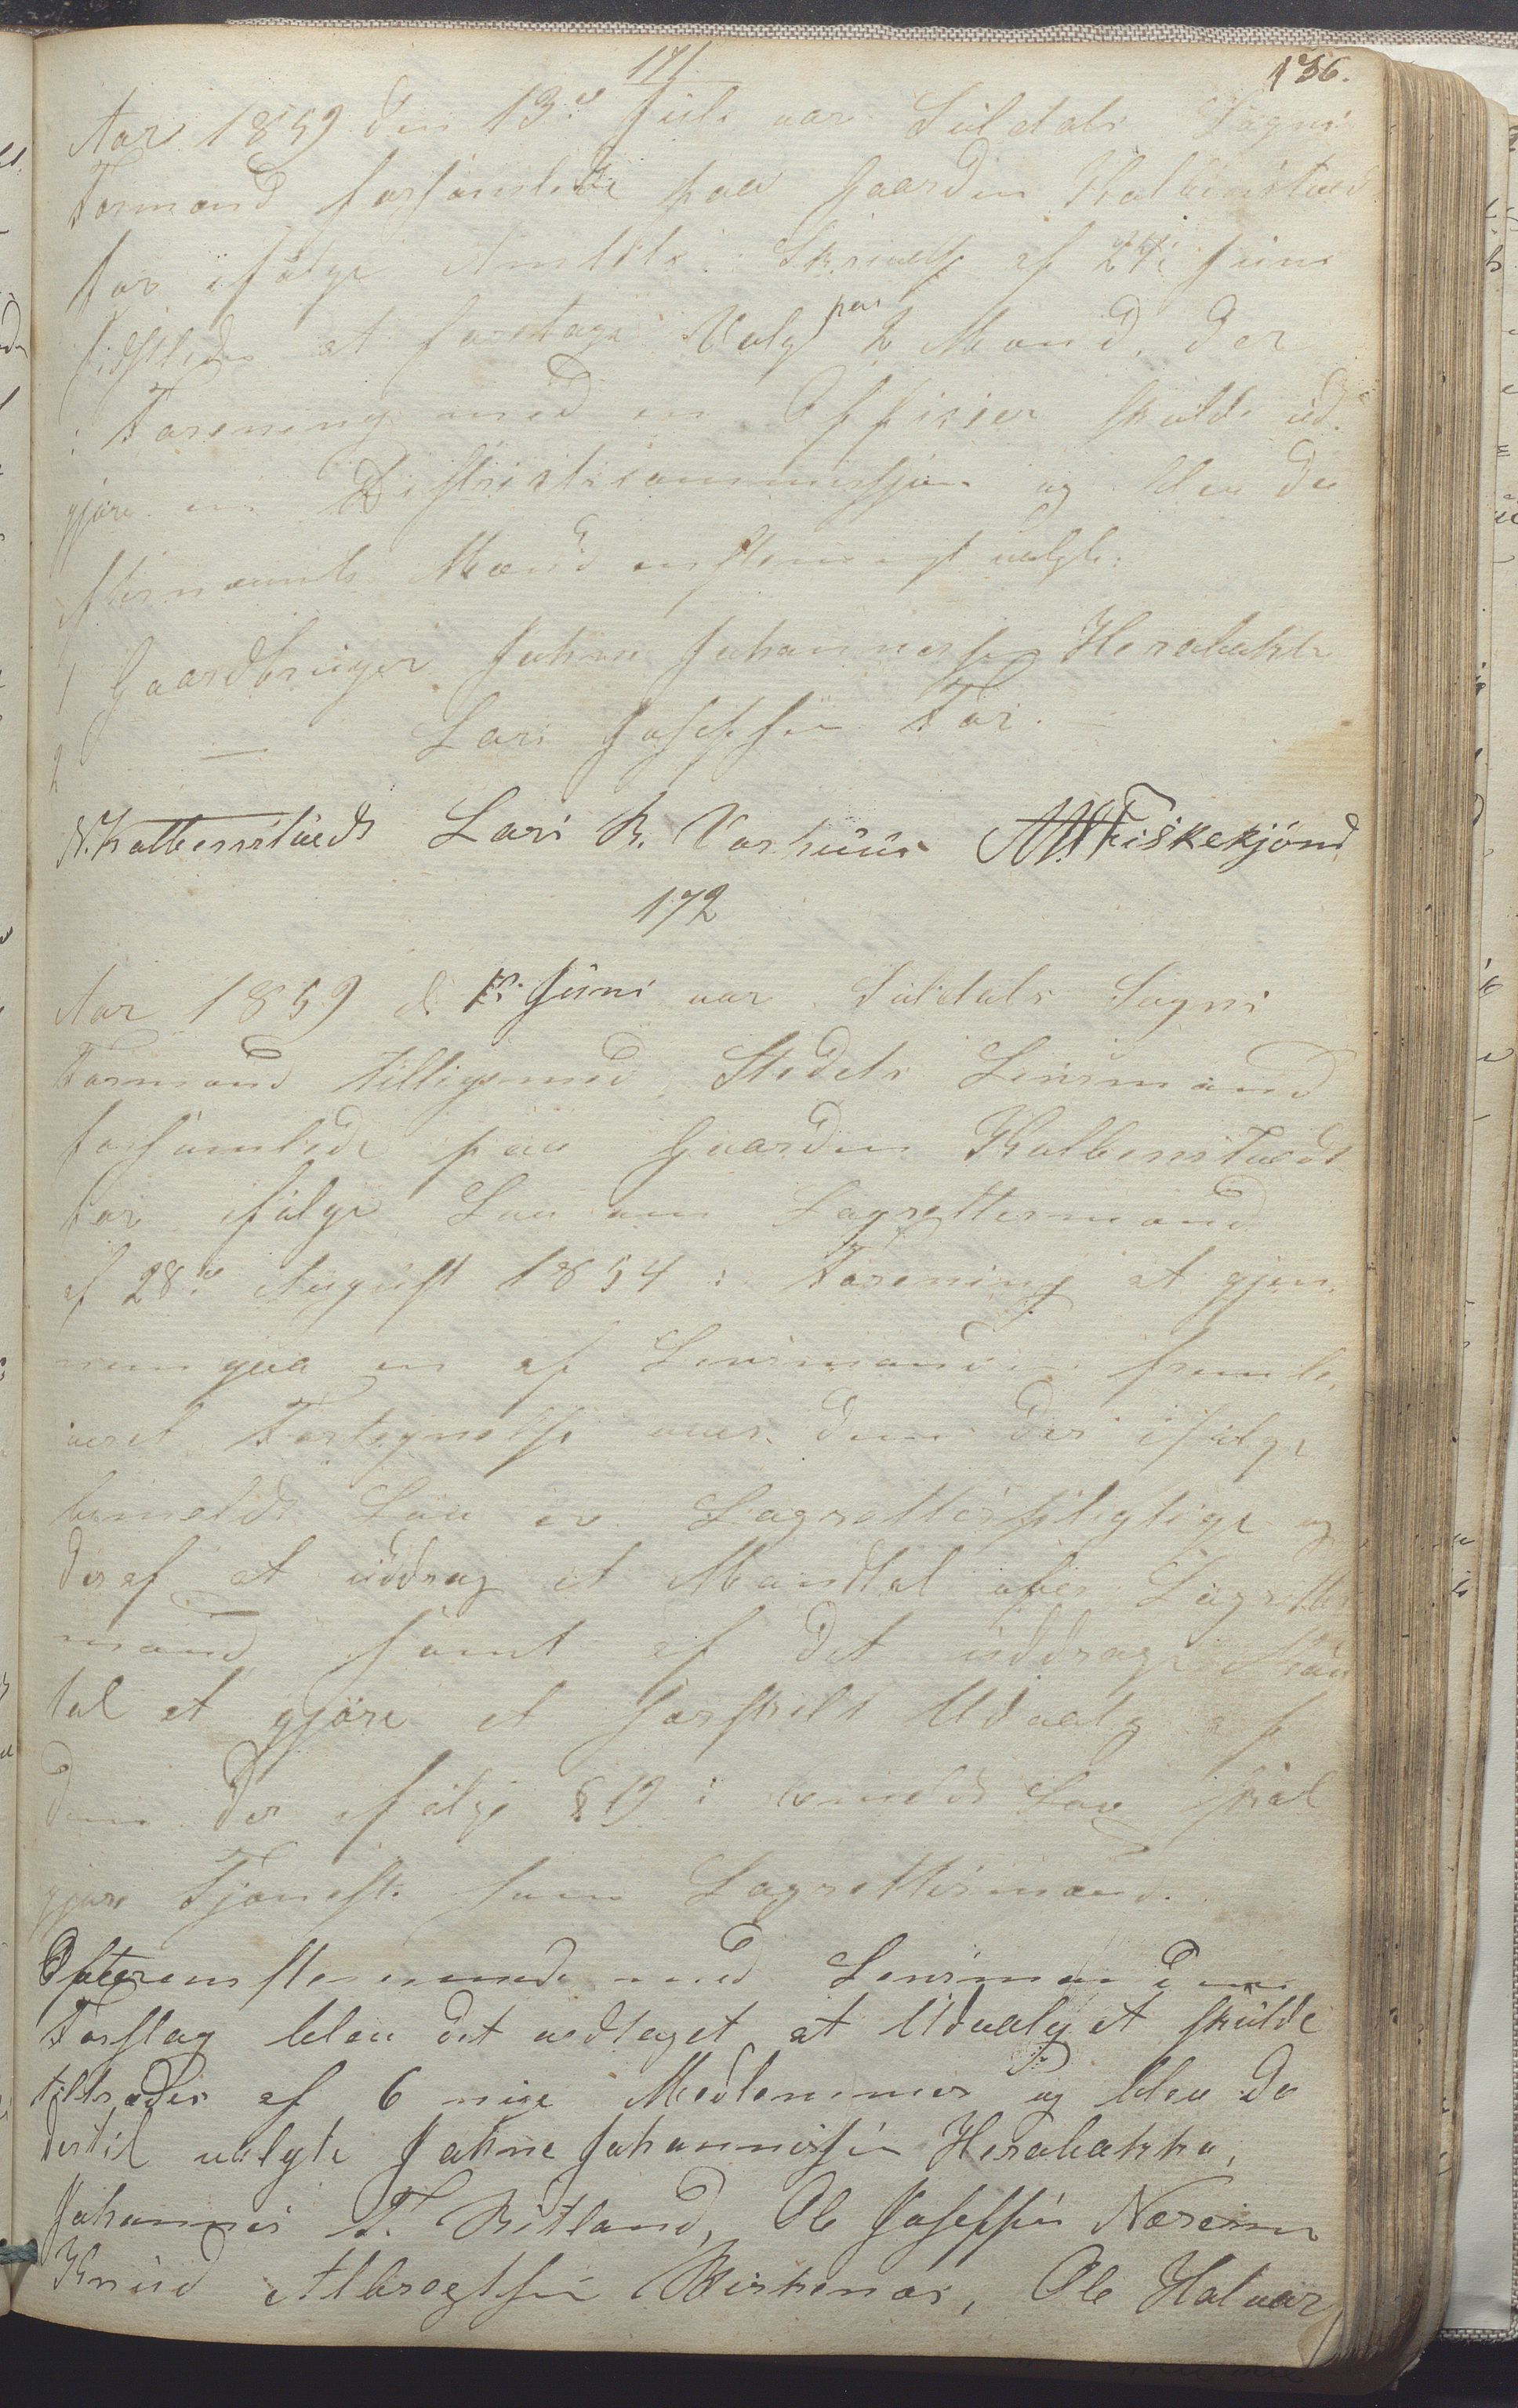 171
136.
Aar 1859 den 13de Juli var Suldals Sogns
Formænd forsamlede paa Gaarden Kolbenstvedt
for ifölge Amtets Skrivelse af 27de Juni
sidstleden at foretage Valg paa 2 Mænd, der
i Forening med en Officier skulde ud-
gjøre en Districtscommission og blev de
efternævnte Mænd enstemmigt valgte:
1 Gaardbruger Johne Johannessen Herabakke
2 — Lars Josefsen Foss. —
N. Kolbenstvedt Lars B. Vashuus A. Fiskekjönd
172
Aar 1859 d. 15 Juni var Suldals Sogns
Formænd tilligemed Stedets Lensmand
forsamlede paa Gaarden Kolbenstvedt
for ifölge Lov om Lagrettesmænd
af 28de August 1854 i Forening at gjen-
nemgaa en af Lensmanden fremle-
veret Fortegnelse over dem der ifölge
bemeldte Lov er Lagrettespligtige og
deraf at uddrag et Mandtal over Lagrettes
mænd samt af det uddragne Man
tal at gjöre et særskilt Udvalg af
dem der ifölge § 19 i bemeldte Lov skal
gjøre Tjeneste som Lagrettesmænd.
Overensstemmende med Lensmandens
Forslag blev det vedtaget at Udvalget skulde
tiltrædes af 6 nye Medlemmer og blev de
dertil valgte Johne Johannessen Herabakka,
Johannes T. Bitland, Ole Josefsen Næreim
Knud Albregtsen Birkenæs, Ole Halvor